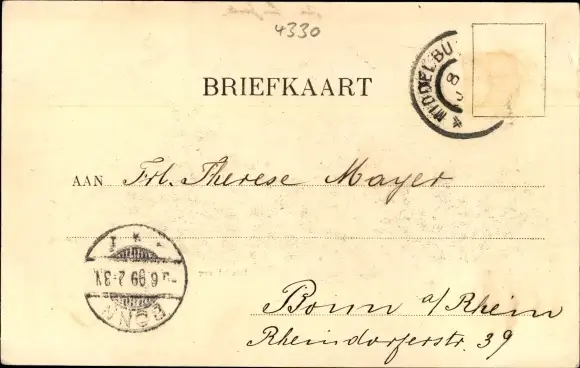 4330
MIDDELBU
8
BRIEFKAART
AAN Frl. Therese Mayer
BONN
6 99 2-3N
Bonn a/Rhein
Rheindorferstr. 39